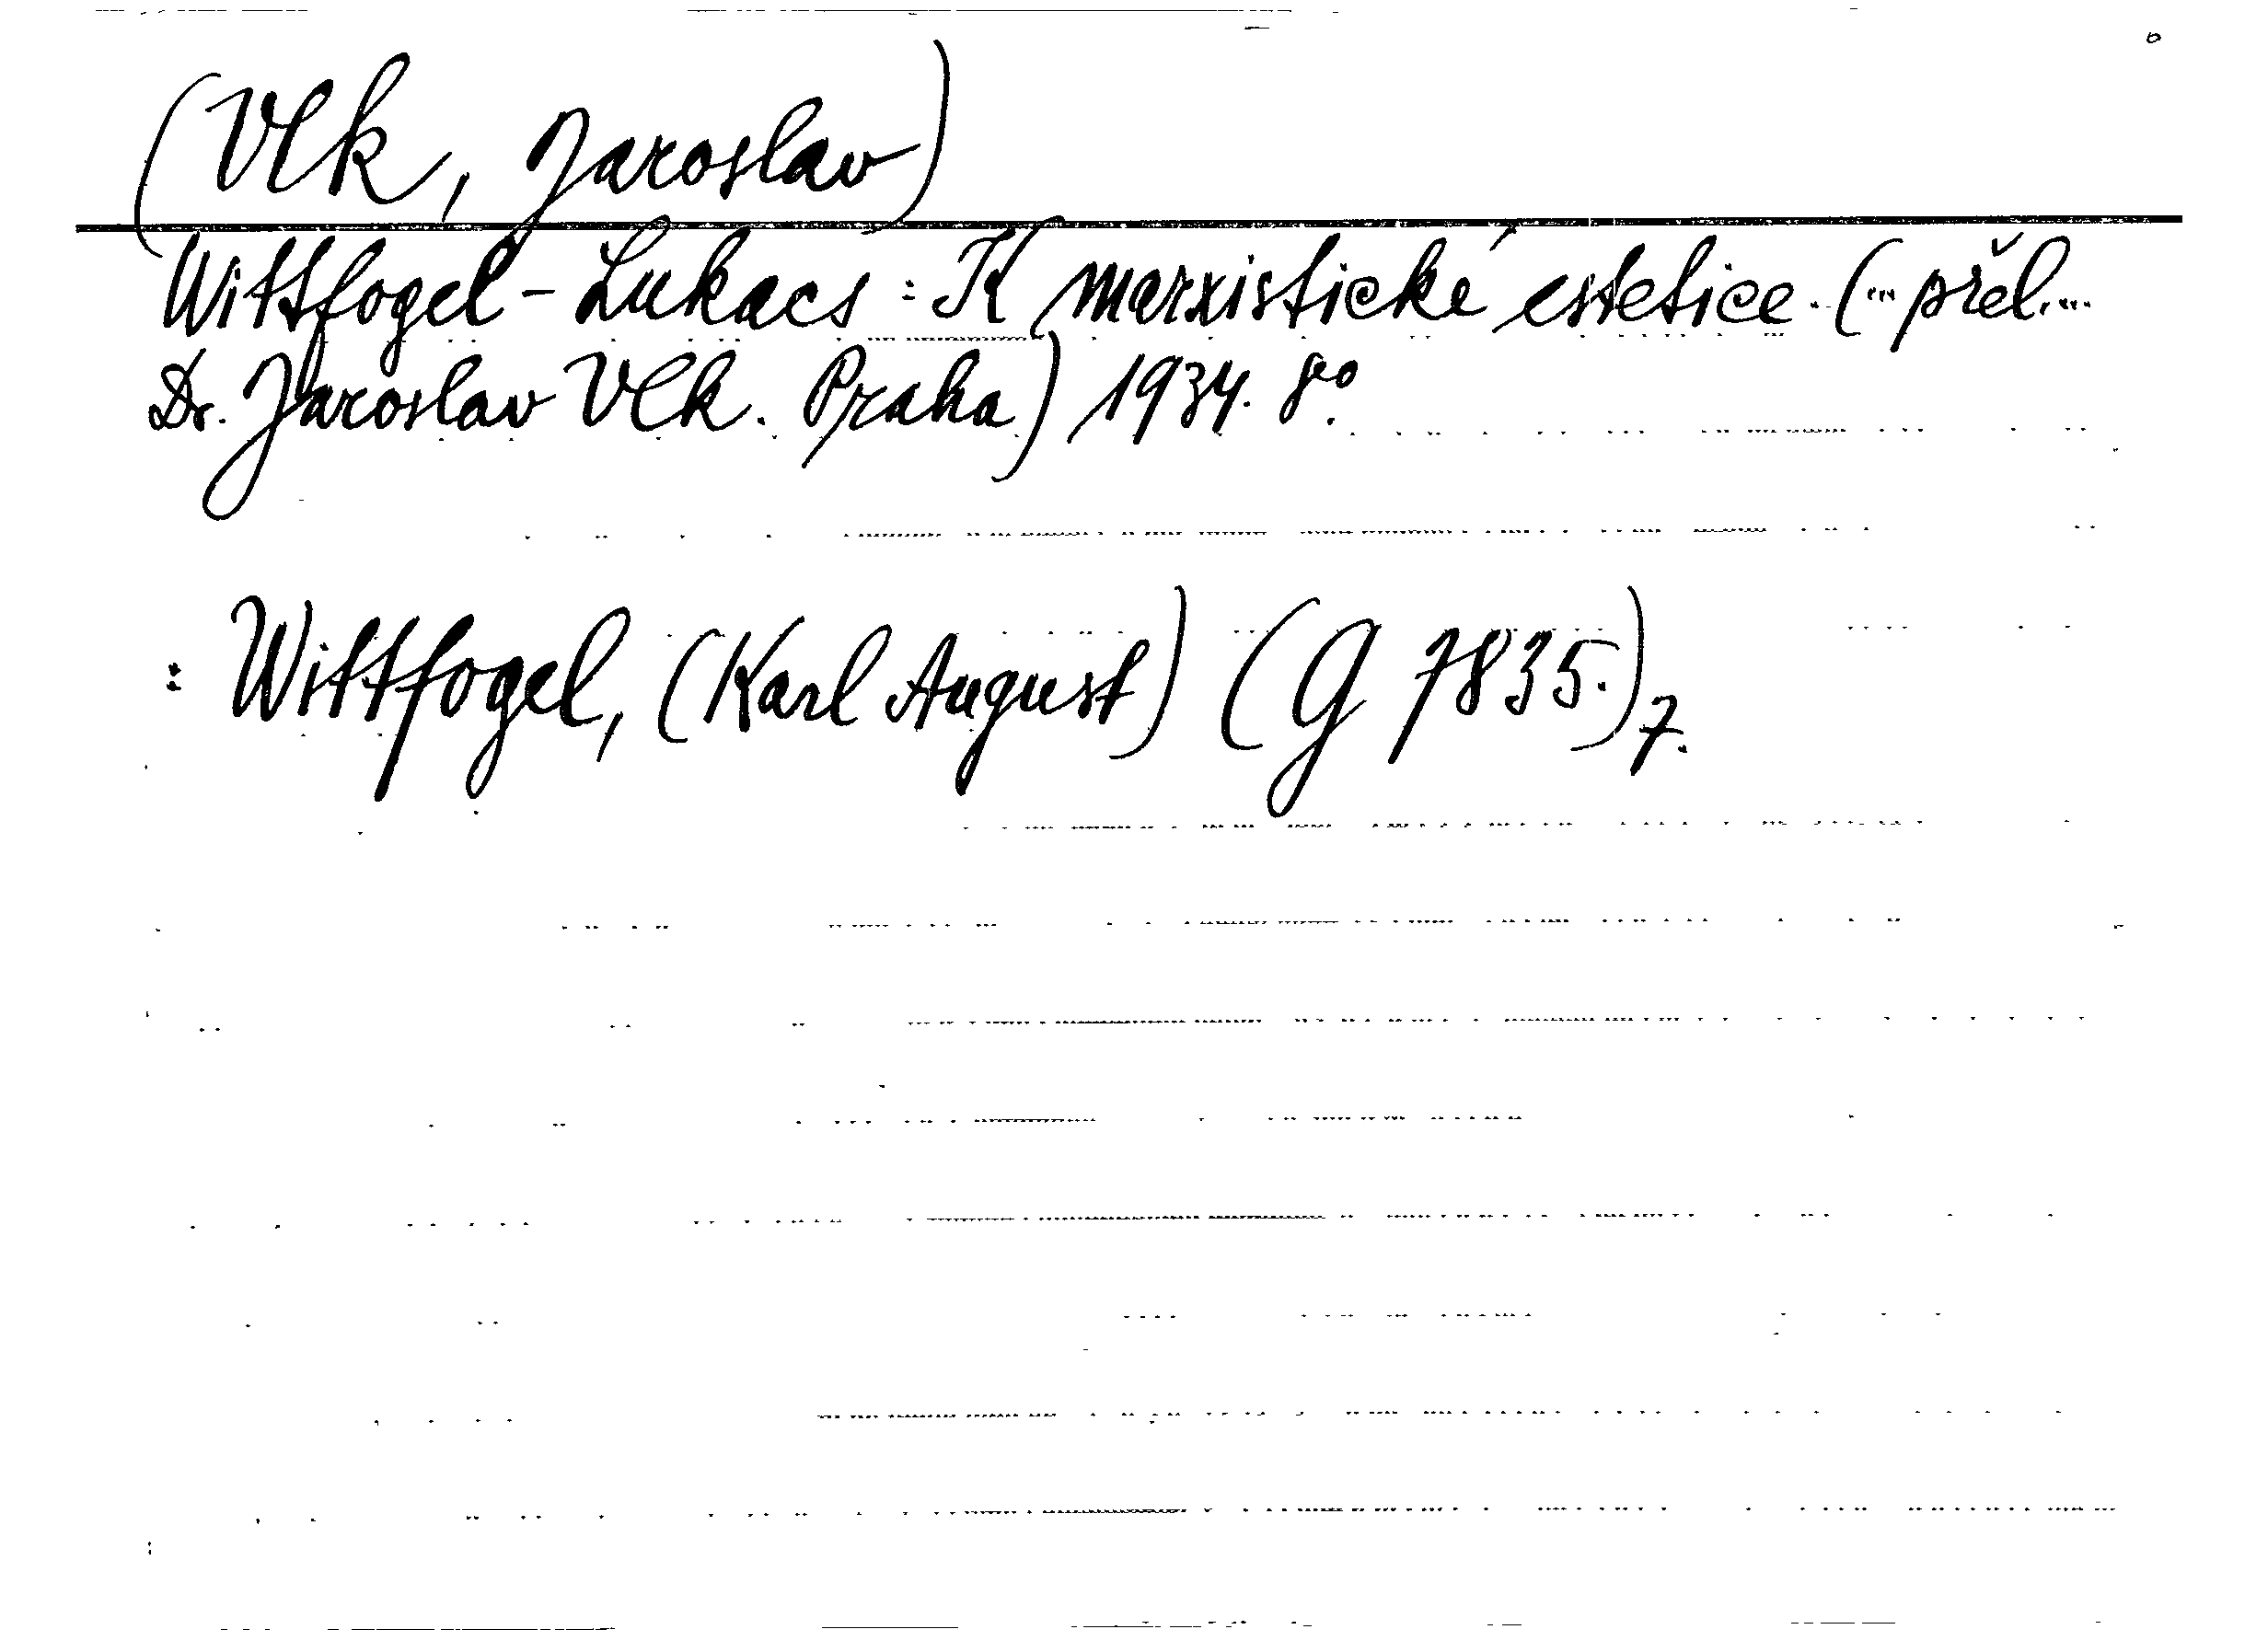 (Vlk, Jaroslav)
Wittfogel - Lukacs: K marxistické estetice. (... přel....
Dr. Jaroslav Vlk. Praha) 1934. 8°.
= Wittfogel, (Karl August) (G 7835.) 7.